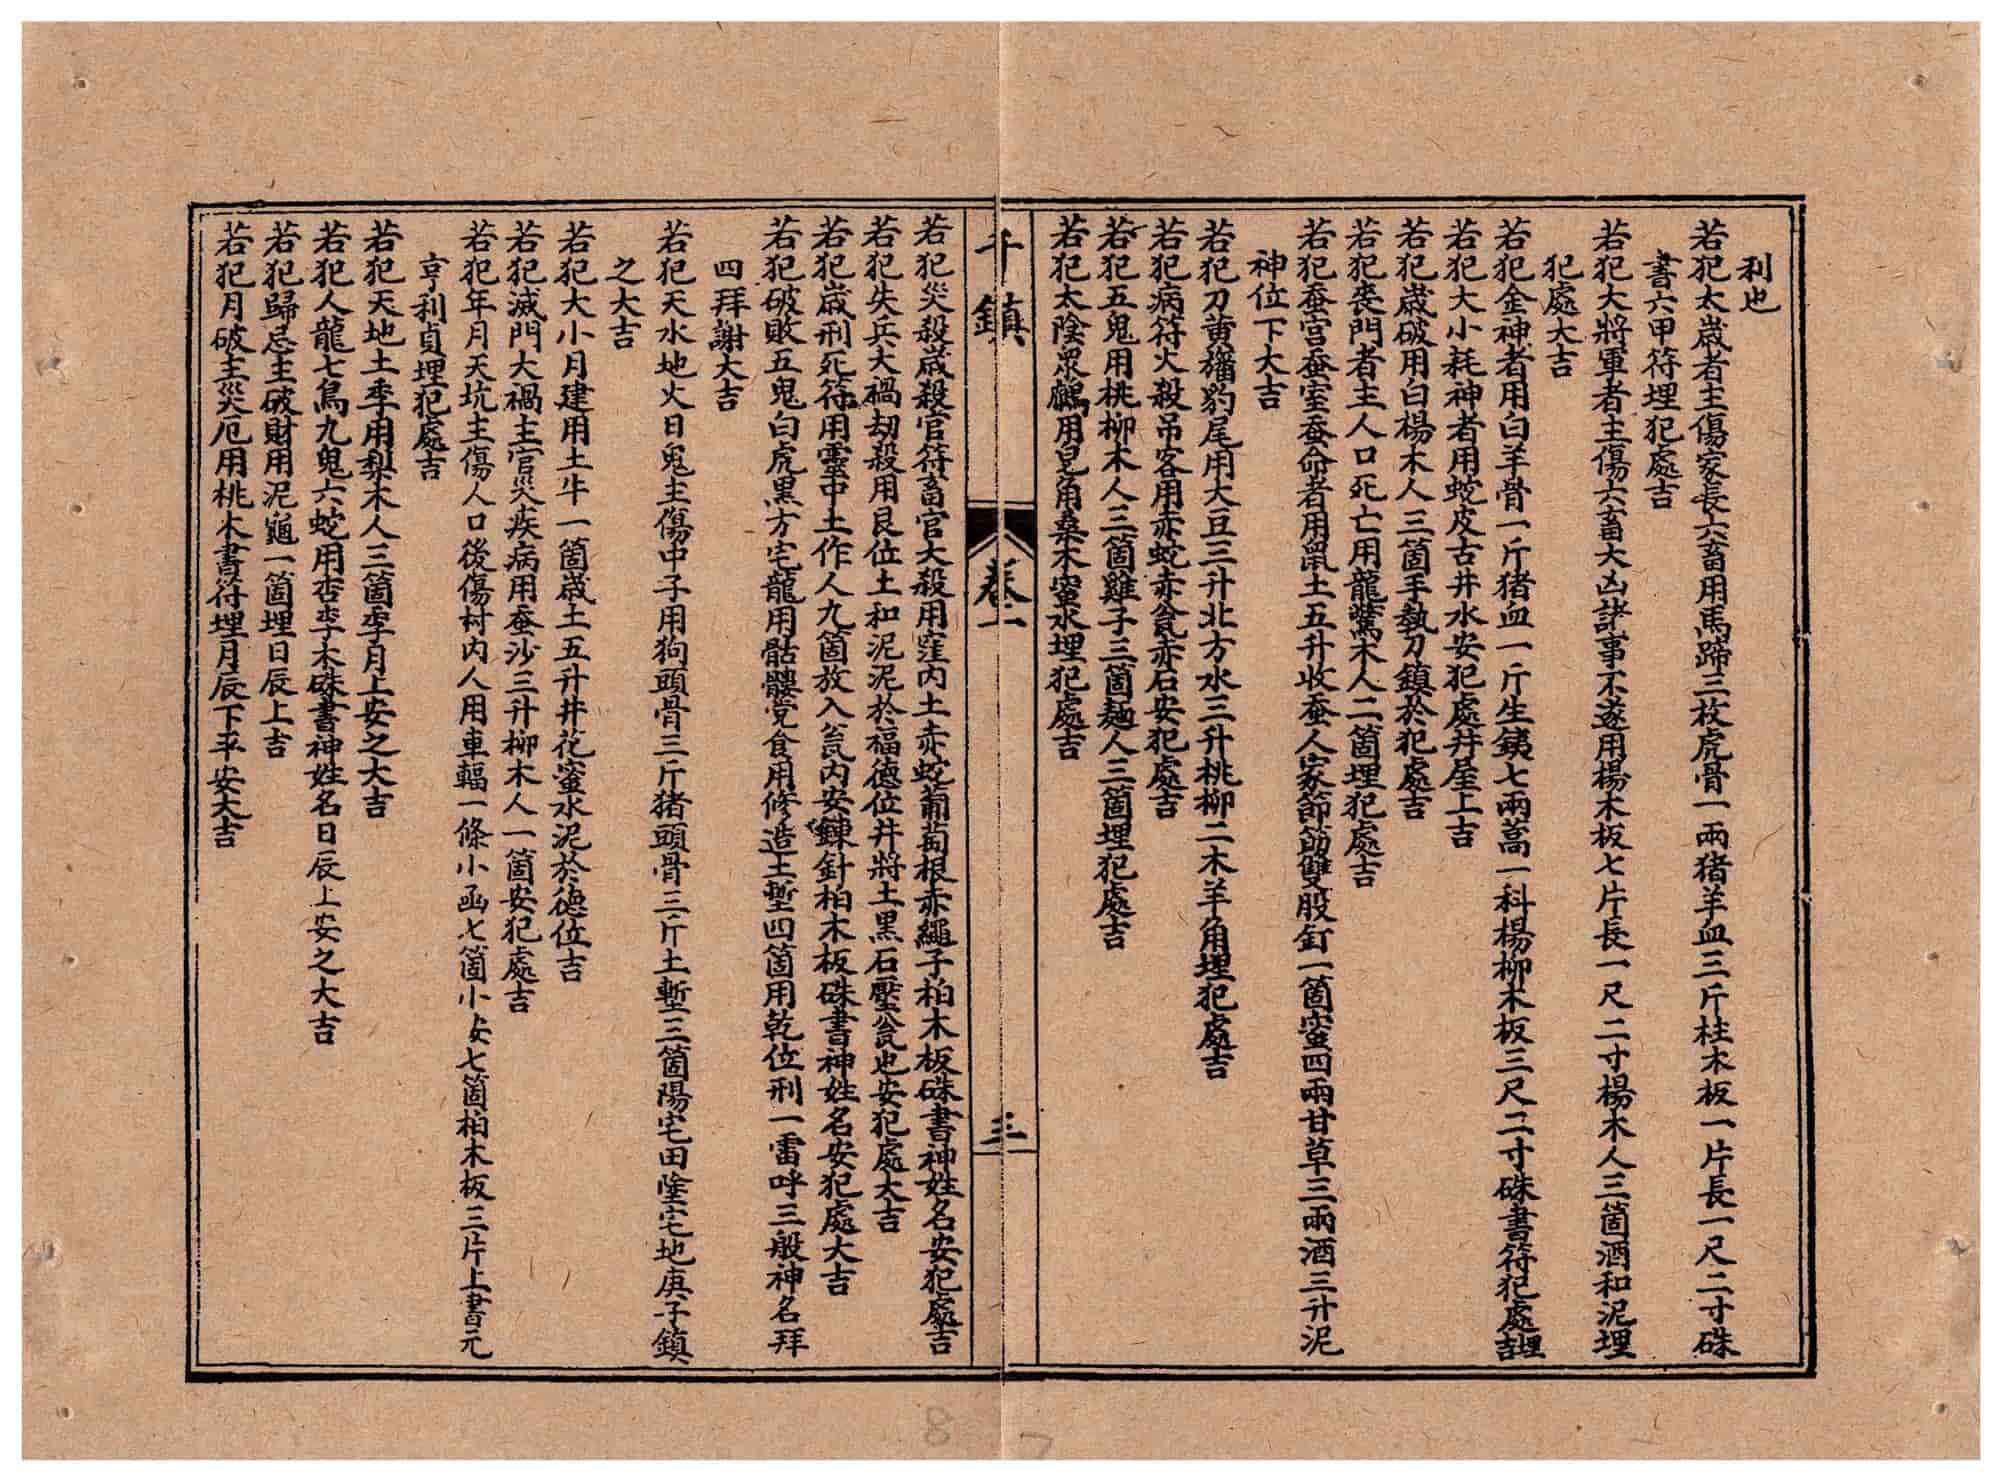 利也
若犯太歲者主傷家長六畜用馬蹄三枚虎骨一兩猪羊血三斤柱木板一片長一尺二寸硃
書六甲符埋犯處吉
若犯大將軍者主傷六畜大凶諸事不遂用楊木板七片長一尺二寸楊木人三箇酒和泥埋
犯處大吉
若犯金神者用白羊骨一斤猪血一斤生鉄七兩蒿一科楊柳木板三尺二寸硃書符犯處埋吉
若犯大小耗神者用蛇皮古井水安犯處井屋上吉
若犯歲破用白楊木人三箇手執刀鎮於犯處吉
若犯喪門者主人口死亡用龍驚木人二箇埋犯處吉
若犯蚕宮蚕室蚕命者用鼠土五升收蚕人家節節雙股釘一箇蜜四兩甘草三兩酒三升泥
神位下大吉
若犯刀黄旛豹尾用大豆三升北方水三升桃柳二木羊角埋犯處吉
若犯病符火殺吊客用赤蛇赤瓮赤石安犯處吉
若犯五鬼用桃柳木人三箇雞子三箇麺人三箇埋犯處吉
若犯太陰眾鷉用皃角桑木蜜水埋犯處吉
千鎮
卷一
三
若犯災殺歲殺官符畜官大殺用窪内土赤蛇葡萄根赤繩子柏木板硃書神姓名安犯處吉
若犯失兵大禍劫殺用艮位土和泥泥於福德位井將土黑石壓瓮也安犯處大吉
若犯歲刑死符用靈中土作人九箇放入瓮内安鍊針柏木板硃書神姓名安犯處大吉
若犯破敗五鬼白虎黑方宅龍用骷髏党食用修造土墼四箇用乾位刑一雷呼三般神名拜
四拜謝大吉
若犯天水地火日鬼主傷中子用狗頭骨三斤猪頭骨三斤土墼三箇陽宅田陰宅地庚子鎮
之大吉
若犯大小月建用土牛一箇歲土五升井花蜜水泥於德位吉
若犯滅門大禍主官災疾病用蚕沙三升柳木人一箇安犯處吉
若犯年月天坑主傷人口後傷村内人用車輻一條小函七箇小安七箇柏木板三片上書元
亨利貞埋犯處吉
若犯天地土季用梨木人三箇季月上安之大吉
若犯人龍七鳥九鬼六蛇用杏李木硃書神姓名日辰上安之大吉
若犯歸忌主破財用泥龜一箇埋日辰上吉
若犯月破主災厄用桃木書符埋月辰下平安大吉
8
7